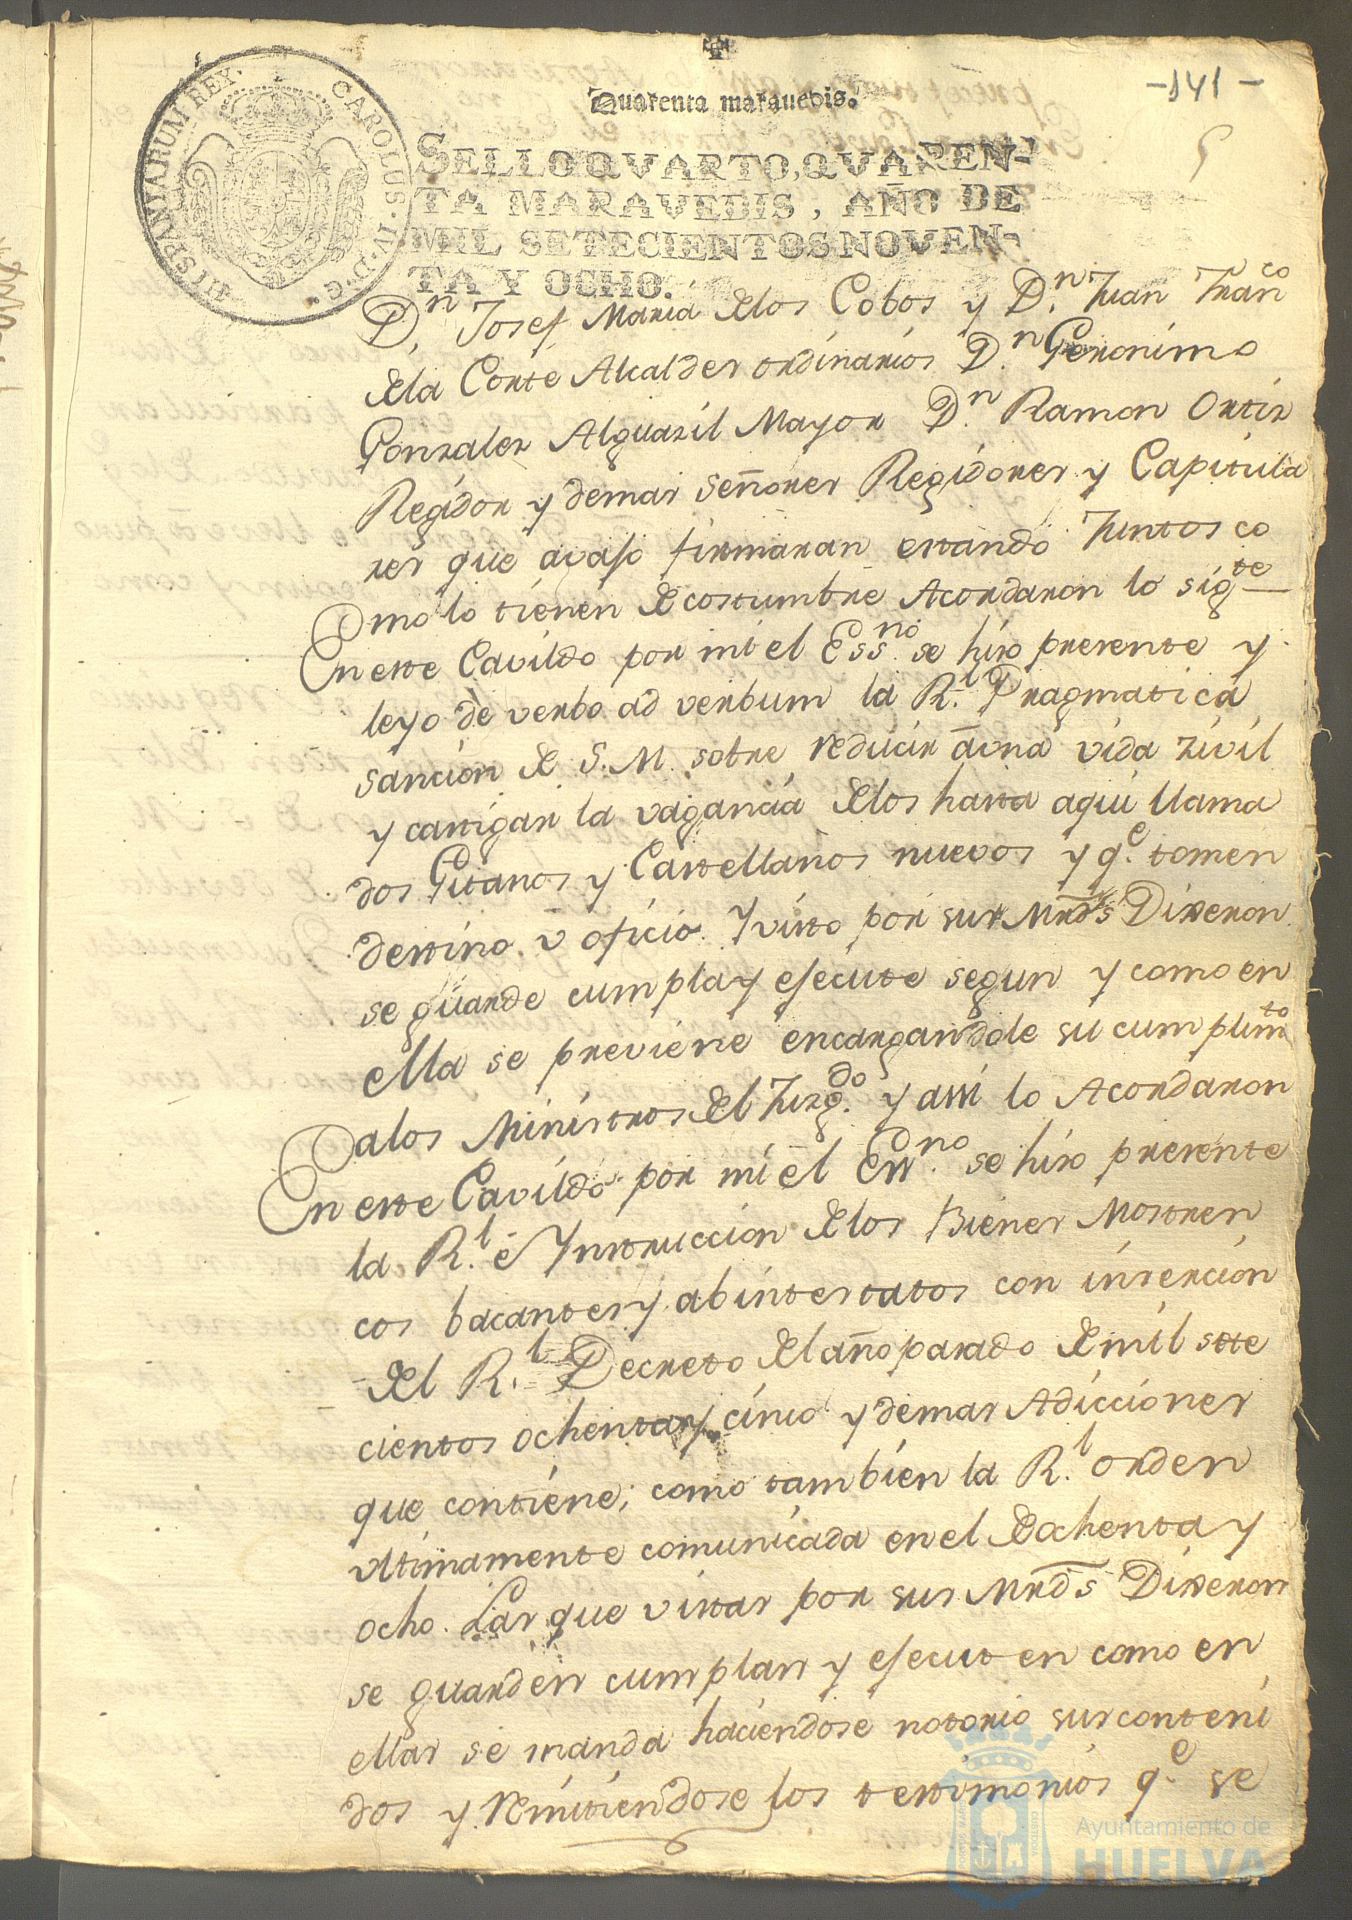 -141-
5
Quarenta maravedis.
SELLO QVARTO, QVAREN-
TA MARAVEDIS, AÑO DE
MIL SETECIENTOS NOVEN-
TA Y OCHO.
CAROLUS·IV·D·G· HISPANIARUM REX·
D.n Josef Maria delos Cobos y D.n Juan Franco
dela Corte Alcaldes ordinarios D.n Geronimo
Gonzalez Alguazil Mayor D.n Ramon Ortiz
Regidor y demas señores Regidores y Capitula
res que avajo firmaran estando Juntos co
mo lo tienen de costumbre Acordaron lo sigte
En este Cavildo por mi el Essno se hizo presente y
leyo de verbo ad verbum la R.l Pragmatica
sancion de S.M. sobre reducir a una vida zivil
y castigar la vagancia delos hasta aqui llama
dos Gitanos y Castellanos nuevos y q.e tomen
destino v oficio Y visto por sus Mrds Dixeron
se guarde cumpla y execute segun y como en
ella se previene encargandole su cumplimto
alos Ministros del Juzg.do y assi lo Acordaron
En este Cavildo por mi el Ess.no se hizo presente
la R.l é Ynstruccion delos Bienes Mostren
cos bacantes y abintestatos con insercion
del R.l Decreto del año pasado de mil sete
cientos ochenta y cinco y demas Adicciones
que contiene; como tambien la R.l orden
vltimamente comunicada en el de ochenta y
ocho. Las que vistas por sus Mrds Dixeron
se guarden cumplan y executen como en
ellas se manda haciendose notorio sus conteni
dos y remitiendose los testimonios q.e se
Ayuntamiento de
HUELVA